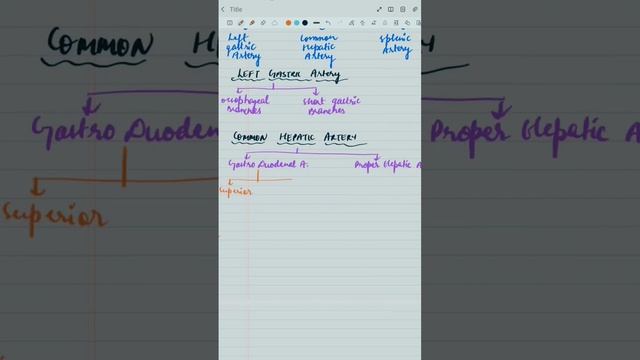 Title
Left Common Splenic
gastric Hepatic Artery
Artery Artery
LEFT GASTRIC Artery
oesophageal short gastric
Branches Branches
COMMON HEPATIC ARTERY
Gastro Duodenal A. Proper Hepatic A
Superior
COMMON HE
ARTERY
Gastro Duoden
Proper Hepatic A
Superior